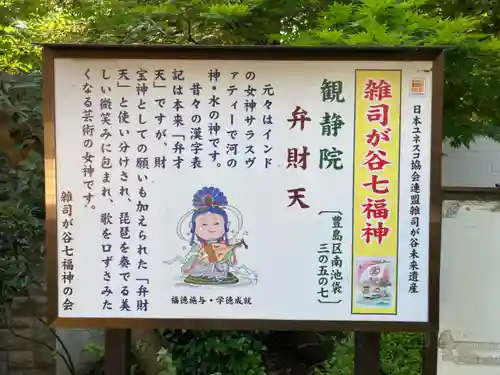 日本ユネスコ協会連盟雑司が谷未来遺産
雑司が谷七福神
観静院
弁財天
豊島区南池袋
三の五の七
元々はインド
の女神サラスヴ
ァティーで河の
神・水の神です。
昔々の漢字表
記は本来「弁才
天」ですが、財
宝神としての願いも加えられた「弁財
天」と使い分けされ、琵琶を奏でる美
しい微笑みに包まれ、歌を口ずさみた
くなる芸術の女神です。
雑司が谷七福神の会
福徳施与・学徳成就